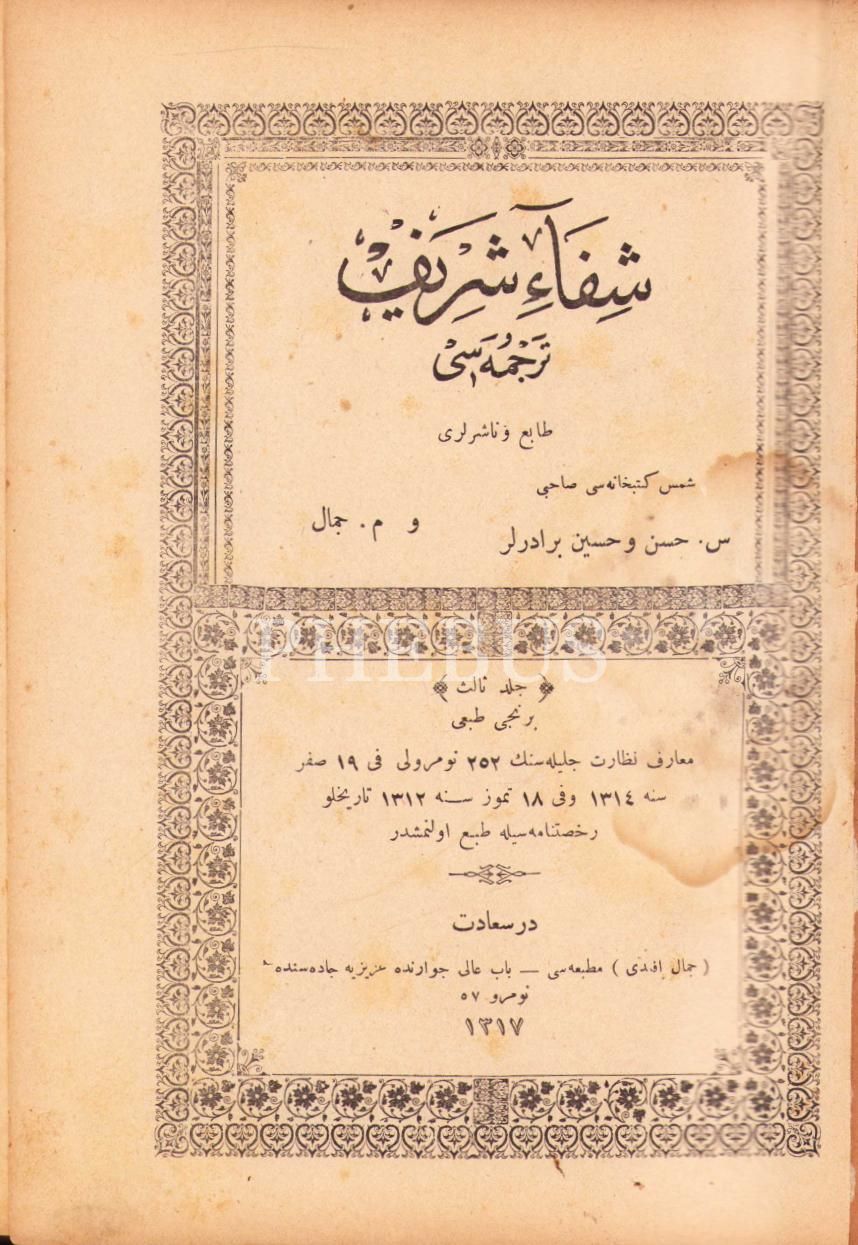 شِفَآءِ شَرِيفْ
تَرْجُمَهسَى
طابع و ناشرلرى
شمس كتبخانه‌سى صاحبى
س. حسن و حسين برادرلر و م. جمال
PHEBUS
جلد ثالث
برنجى طبعى
معارف نظارت جليله‌سنك ٢٥٢ نومرولى فى ١٩ صفر
سنه ١٣١٤ وفى ١٨ تموز سنه ١٣١٢ تاريخلو
رخصتنامه‌سيله طبع اولنمشدر
درسعادت
( جمال افندى ) مطبعه‌سى — باب عالى جوارنده عزيزيه جاده‌سنده
نومرو ٥٧
١٣١٧